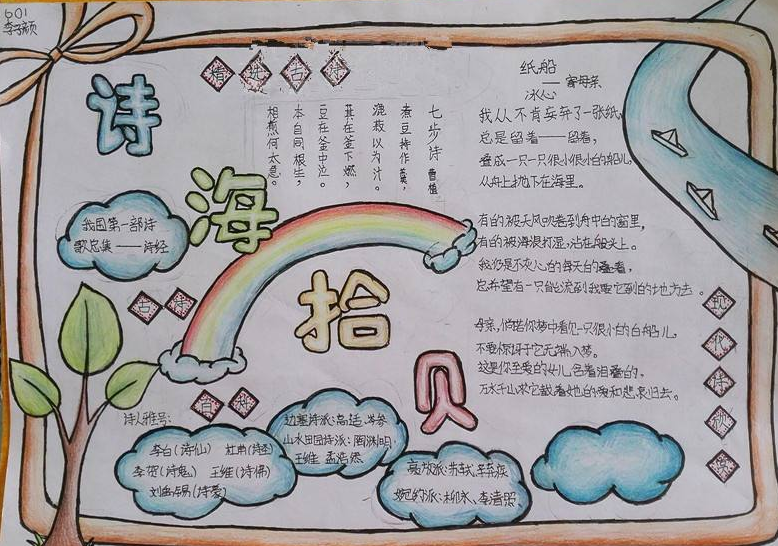 601
李子颜
诗
海
拾
贝
精选古诗
七步诗 曹植
煮豆持作羹，
漉菽以为汁。
萁在釜下燃，
豆在釜中泣。
本自同根生，
相煎何太急。
纸船
——寄母亲
冰心
我从不肯妄弃了一张纸，
总是留着——留着，
叠成一只一只很小很小的船儿，
从舟上抛下在海里。
有的被天风吹卷到舟中的窗里，
有的被海浪打湿，沾在船头上。
我仍是不灰心的每天的叠着，
总希望有一只能流到我要它到的地方去。
母亲，倘若你梦中看见一只很小的白船儿，
不要惊讶它无端入梦。
这是你至爱的女儿含着泪叠的，
万水千山求它载着她的爱和悲哀归去。
现代诗欣
我国第一部诗
歌总集——诗经
古
诗人雅号：
李白（诗仙） 杜甫（诗圣）
李贺（诗鬼） 王维（诗佛）
刘禹锡（诗豪）
边塞诗派：高适、岑参
山水田园诗派：陶渊明
王维 孟浩然
豪放派：苏轼、辛弃疾
婉约派：柳永、李清照